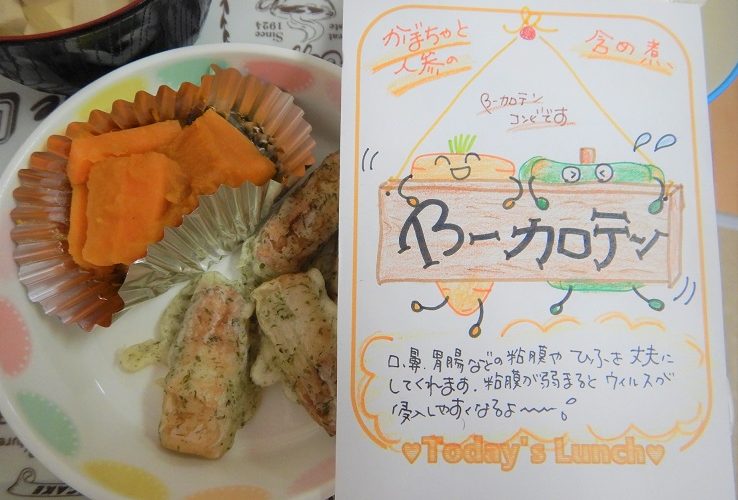 Since
1924
かぼちゃと
人参の
含め煮
β-カロテン
コンビです
β-カロテン
口、鼻、胃腸などの粘膜や ひふを丈夫に
してくれます。粘膜が弱まるとウィルスが
侵入しやすくなるよ〜〜!
♥Today's Lunch♥
CAKE